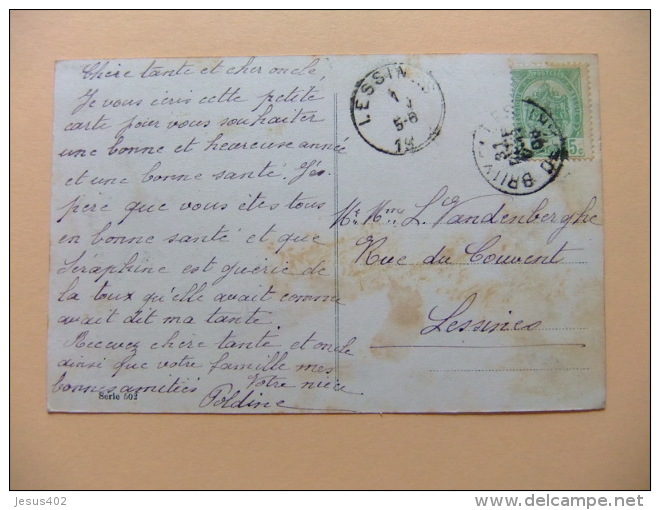 Chère tante et cher oncle,
Je vous écris cette petite
carte pour vous souhaiter
une bonne et heureuse année
et une bonne santé. J'es-
père que vous êtes tous
en bonne santé et que
Séraphine est guérie de
la toux qu'elle avait comme
avait dit ma tante.
Recevez chère tante et oncle
ainsi que votre famille mes
bonnes amitiés Votre nièce
Poldine
Serie 502
LESSIN
1
5-6
31
Mr. Mme L. Vandenberghe
Rue du Couvent
Lessines
Jesus402
delcampe.net